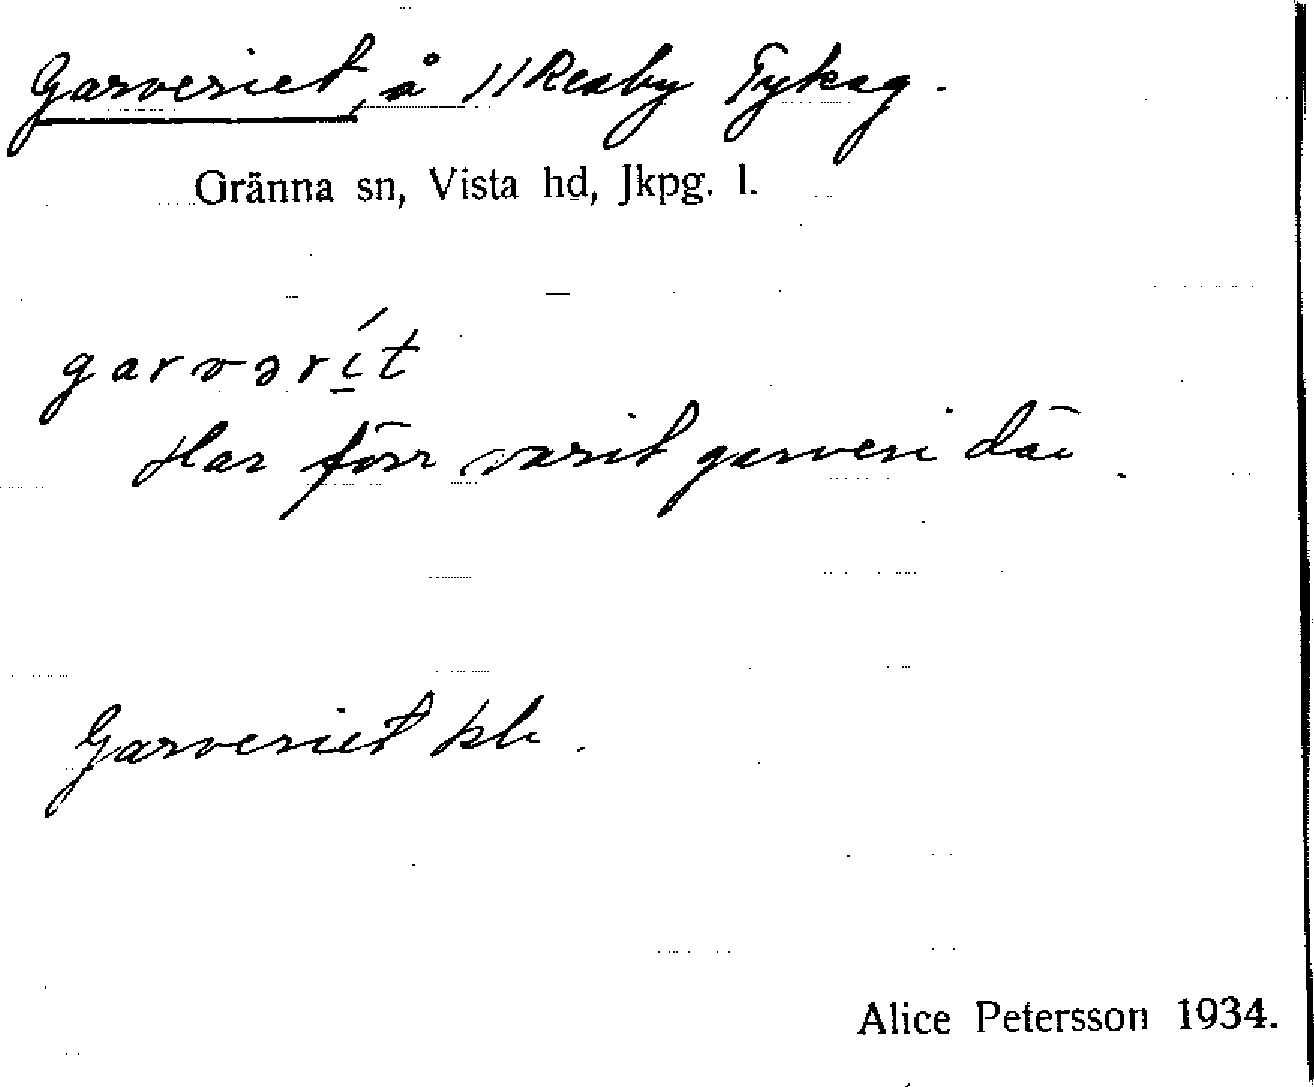 Garveriet, å // Reaby Tykag.
Gränna sn, Vista hd, Jkpg. l.
garvərít
Har förr varit garveri där.
Garveriet kk.
Alice Petersson 1934.